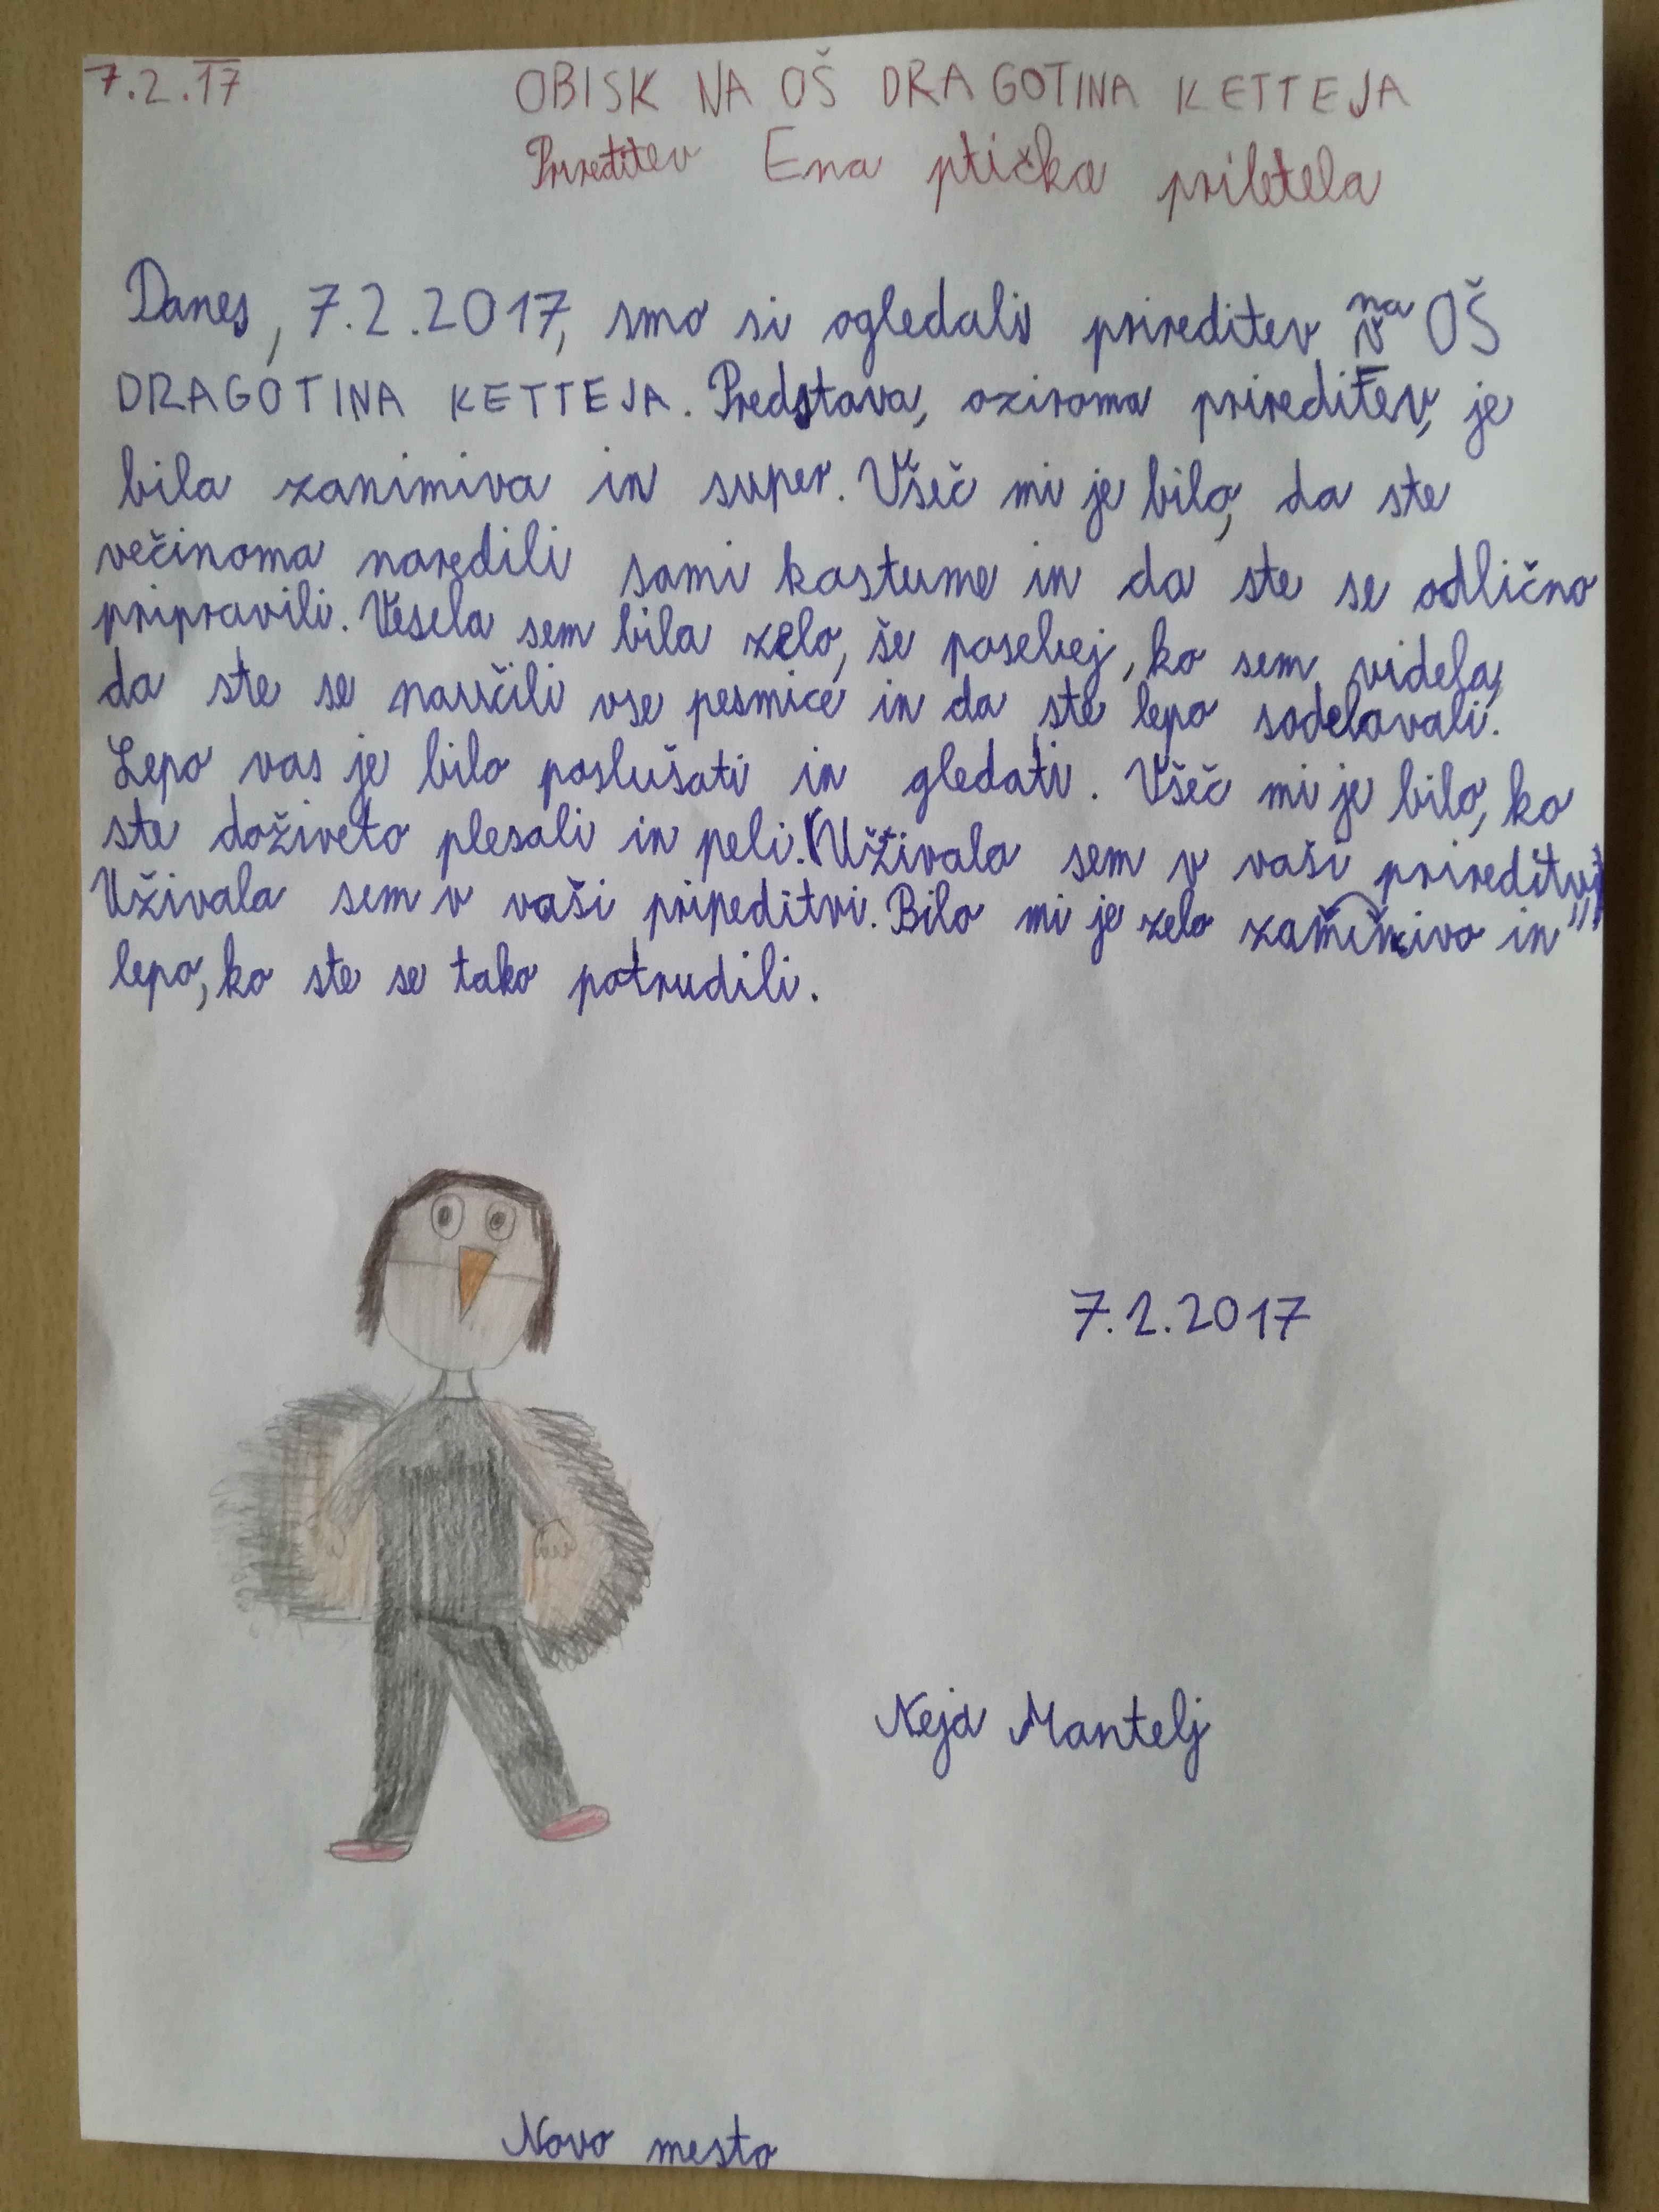 7.2.17
OBISK NA OŠ DRAGOTINA KETTEJA
Prireditev Ena ptička priletela
Danes, 7.2.2017, smo si ogledali prireditev na OŠ
DRAGOTINA KETTEJA. Predstava, oziroma prireditev, je
bila zanimiva in super. Všeč mi je bilo, da ste
večinoma naredili sami kostume in da ste se odlično
pripravili. Vesela sem bila zelo, še posebej, ko sem videla,
da ste se naučili vse pesmice in da ste lepo sodelovali.
Lepo vas je bilo poslušati in gledati. Všeč mi je bilo, ko
ste doživeto plesali in peli. (Uživala sem v vaši prireditvi)
Uživala sem v vaši pripeditvi. Bilo mi je zelo zanimivo in
lepo, ko ste se tako potrudili.
7.2.2017
Neja Mantelj
Novo mesto